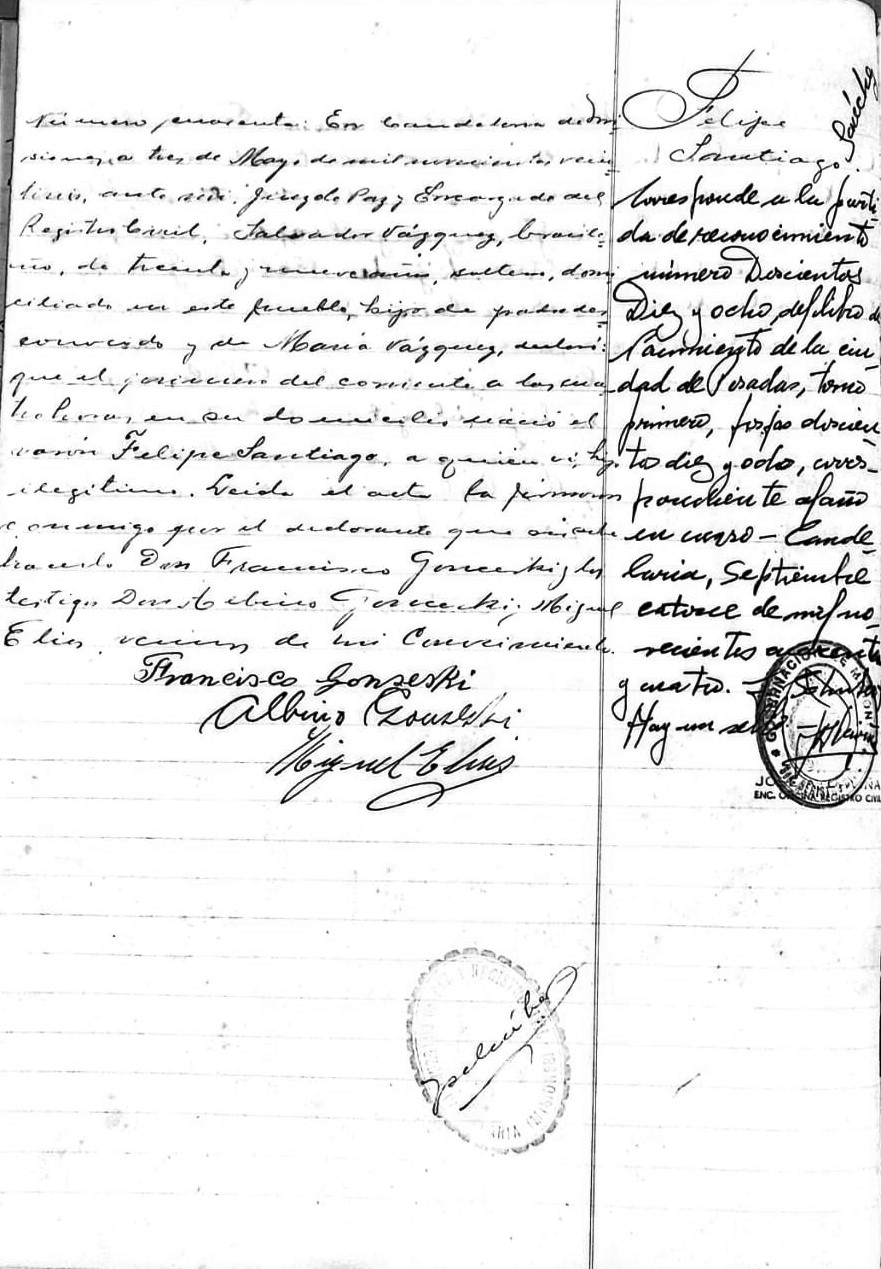 Número cuarenta: En Candelaria de Mi-
siones, a tres de Mayo de mil novecientos vein-
ante mi, Juez de Paz y Encargado del
Registro Civil, Salvador Vázquez, brasile-
ño, de treinta y nueve años, soltero, domi-
ciliado en este pueblo, hijo de padre des-
conocido y de María Vázquez, declaró:
que el primero del corriente a las cua-
tro horas, en su domicilio nació el
varón Felipe Santiago, a quien
ilegítimo. Leida el acta la firmaron
conmigo por el declarante que no sabe
hacerlo Don Francisco Gonceski y los
testigos Don Albino Gonceski y Miguel
Elias, vecinos de mi conocimiento.
Francisco Gonseski
Albino Gonseski
Miguel Elias
Felipe
Santiago.
Corresponde a la parti-
da de reconocimiento
número Doscientos
Diez y ocho, del libro de
Nacimiento de la ciu-
dad de Posadas, tomo
primero, fojas doscien-
tos diez y ocho, corres-
pondiente al año
en curso - Cande-
laria, Septiembre
catorce de mil no-
vecientos
y cuatro.
Hay un
GOBERNACION DE MISIONES
ENC. OFICINA REGISTRO CIVIL